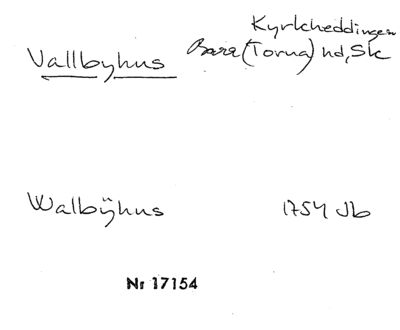 Kyrkheddinge
Vallbyhus Bara (Torna) hd, Sk
Walbÿhus 1754 Jb
Nr 17154